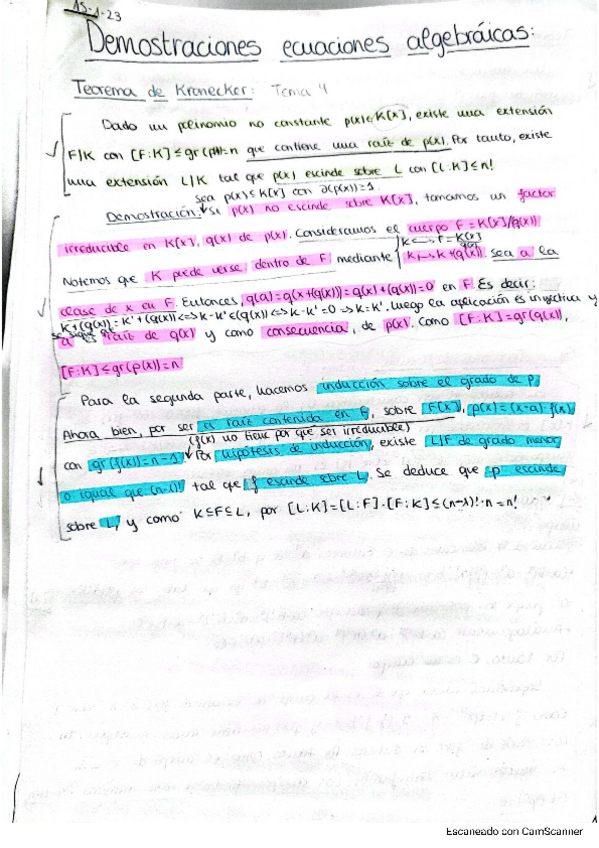 15-1-23
Demostraciones ecuaciones algebráicas:
Teorema de Kronecker: Tema 4
Dado un polinomio no constante p(x)∈K[x], existe una extensión
F/K con [F:K]≤gr(p)=n que contiene una raíz de p(x). Por tanto, existe
una extensión L/K tal que p(x) escinde sobre L con [L:K]≤n!
sea p(x)∈K[x] con ∂(p(x))=1.
Demostración: Si p(x) no escinde sobre K[x], tomamos un factor
irreducible en K[x], q(x) de p(x). Consideramos el cuerpo F=K[x]/(q(x))
Notemos que K puede verse dentro de F mediante k↦k+(q(x)). Sea a la
clase de x en F. Entonces, q(a)=q(x+(q(x)))=q(x)+(q(x))=0 en F. Es decir:
k+(q(x))=k'+(q(x))<=>k-k'∈(q(x))<=>k-k'=0=>k=k'. Luego la aplicación es inyectiva y
a es raíz de q(x) y como consecuencia, de p(x). Como [F:K]=gr(q(x)),
[F:K]≤gr(p(x))=n
Para la segunda parte, hacemos inducción sobre el grado de p.
Ahora bien, por ser a raíz contenida en F, sobre F[x], p(x)=(x-a)·f(x)
(f(x) no tiene por que ser irreducible)
con gr(f(x))=n-1. Por hipótesis de inducción, existe L/F de grado menor
o igual que (n-1)! tal que f escinde sobre L. Se deduce que p escinde
sobre L, y como K⊆F⊆L, por [L:K]=[L:F]·[F:K]≤(n-1)!·n=n!
Escaneado con CamScanner